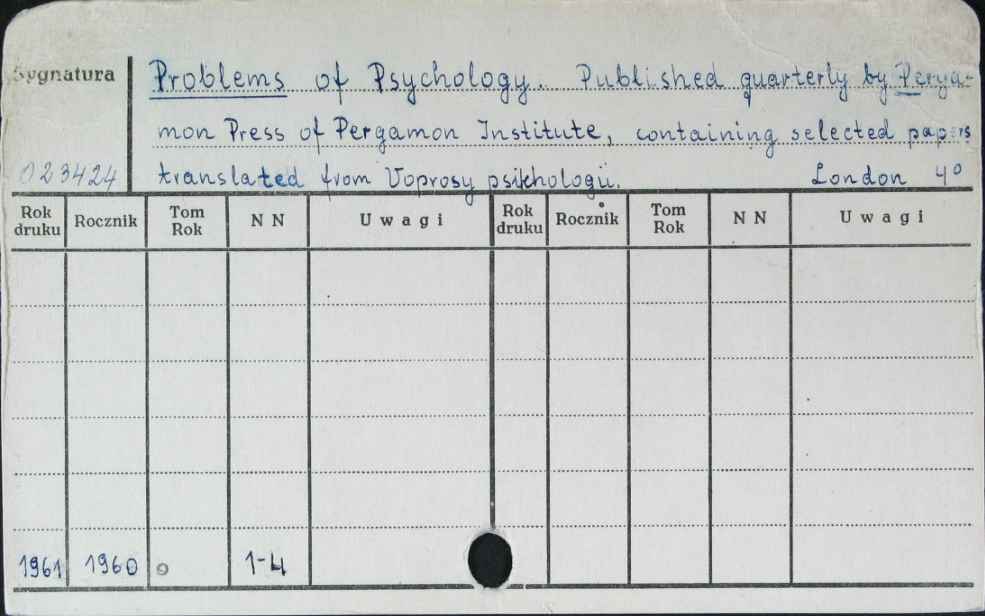 Sygnatura
Problems of Psychology. Published quarterly by Perga-
mon Press of Pergamon Institute, containing selected papers
023424 translated from Voprosy psikhologii. London 4°
Rok druku Rocznik Tom Rok N N Uwagi Rok druku Rocznik Tom Rok N N Uwagi
1961 1960 1-4